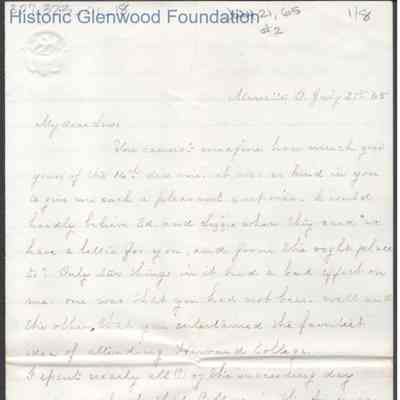 Historic Glenwood Foundation
1/8
#2
21, 65
O. July 21st 65
My dear
You cannot imagine how much good
yours of the 14th did me. it was so kind in you
to give me such a pleasant surprise. I could
hardly believe Ed. and Lizzie when they said "we
have a letter for you, and from the right place
to". Only two things in it had a bad effect on
me. one was that you had not been well and
the other, that you entertained the faintest
idea of attending Harvard College.
I spent nearly all of the succeeding day